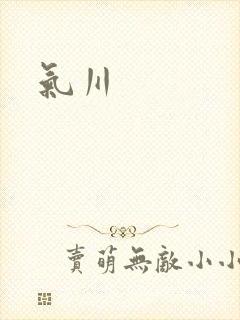 氣川
賣萌無敵小小